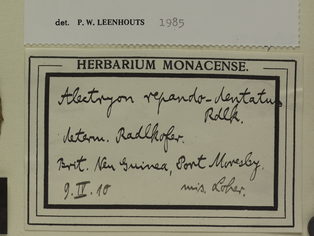 det. P. W. LEENHOUTS 1985
HERBARIUM MONACENSE.
Alectryon repando-dentatus
Rdlk.
determ. Radlkofer.
Brit. Neu Guinea, Port Moresby.
9. IV. 10 mis. Loher.